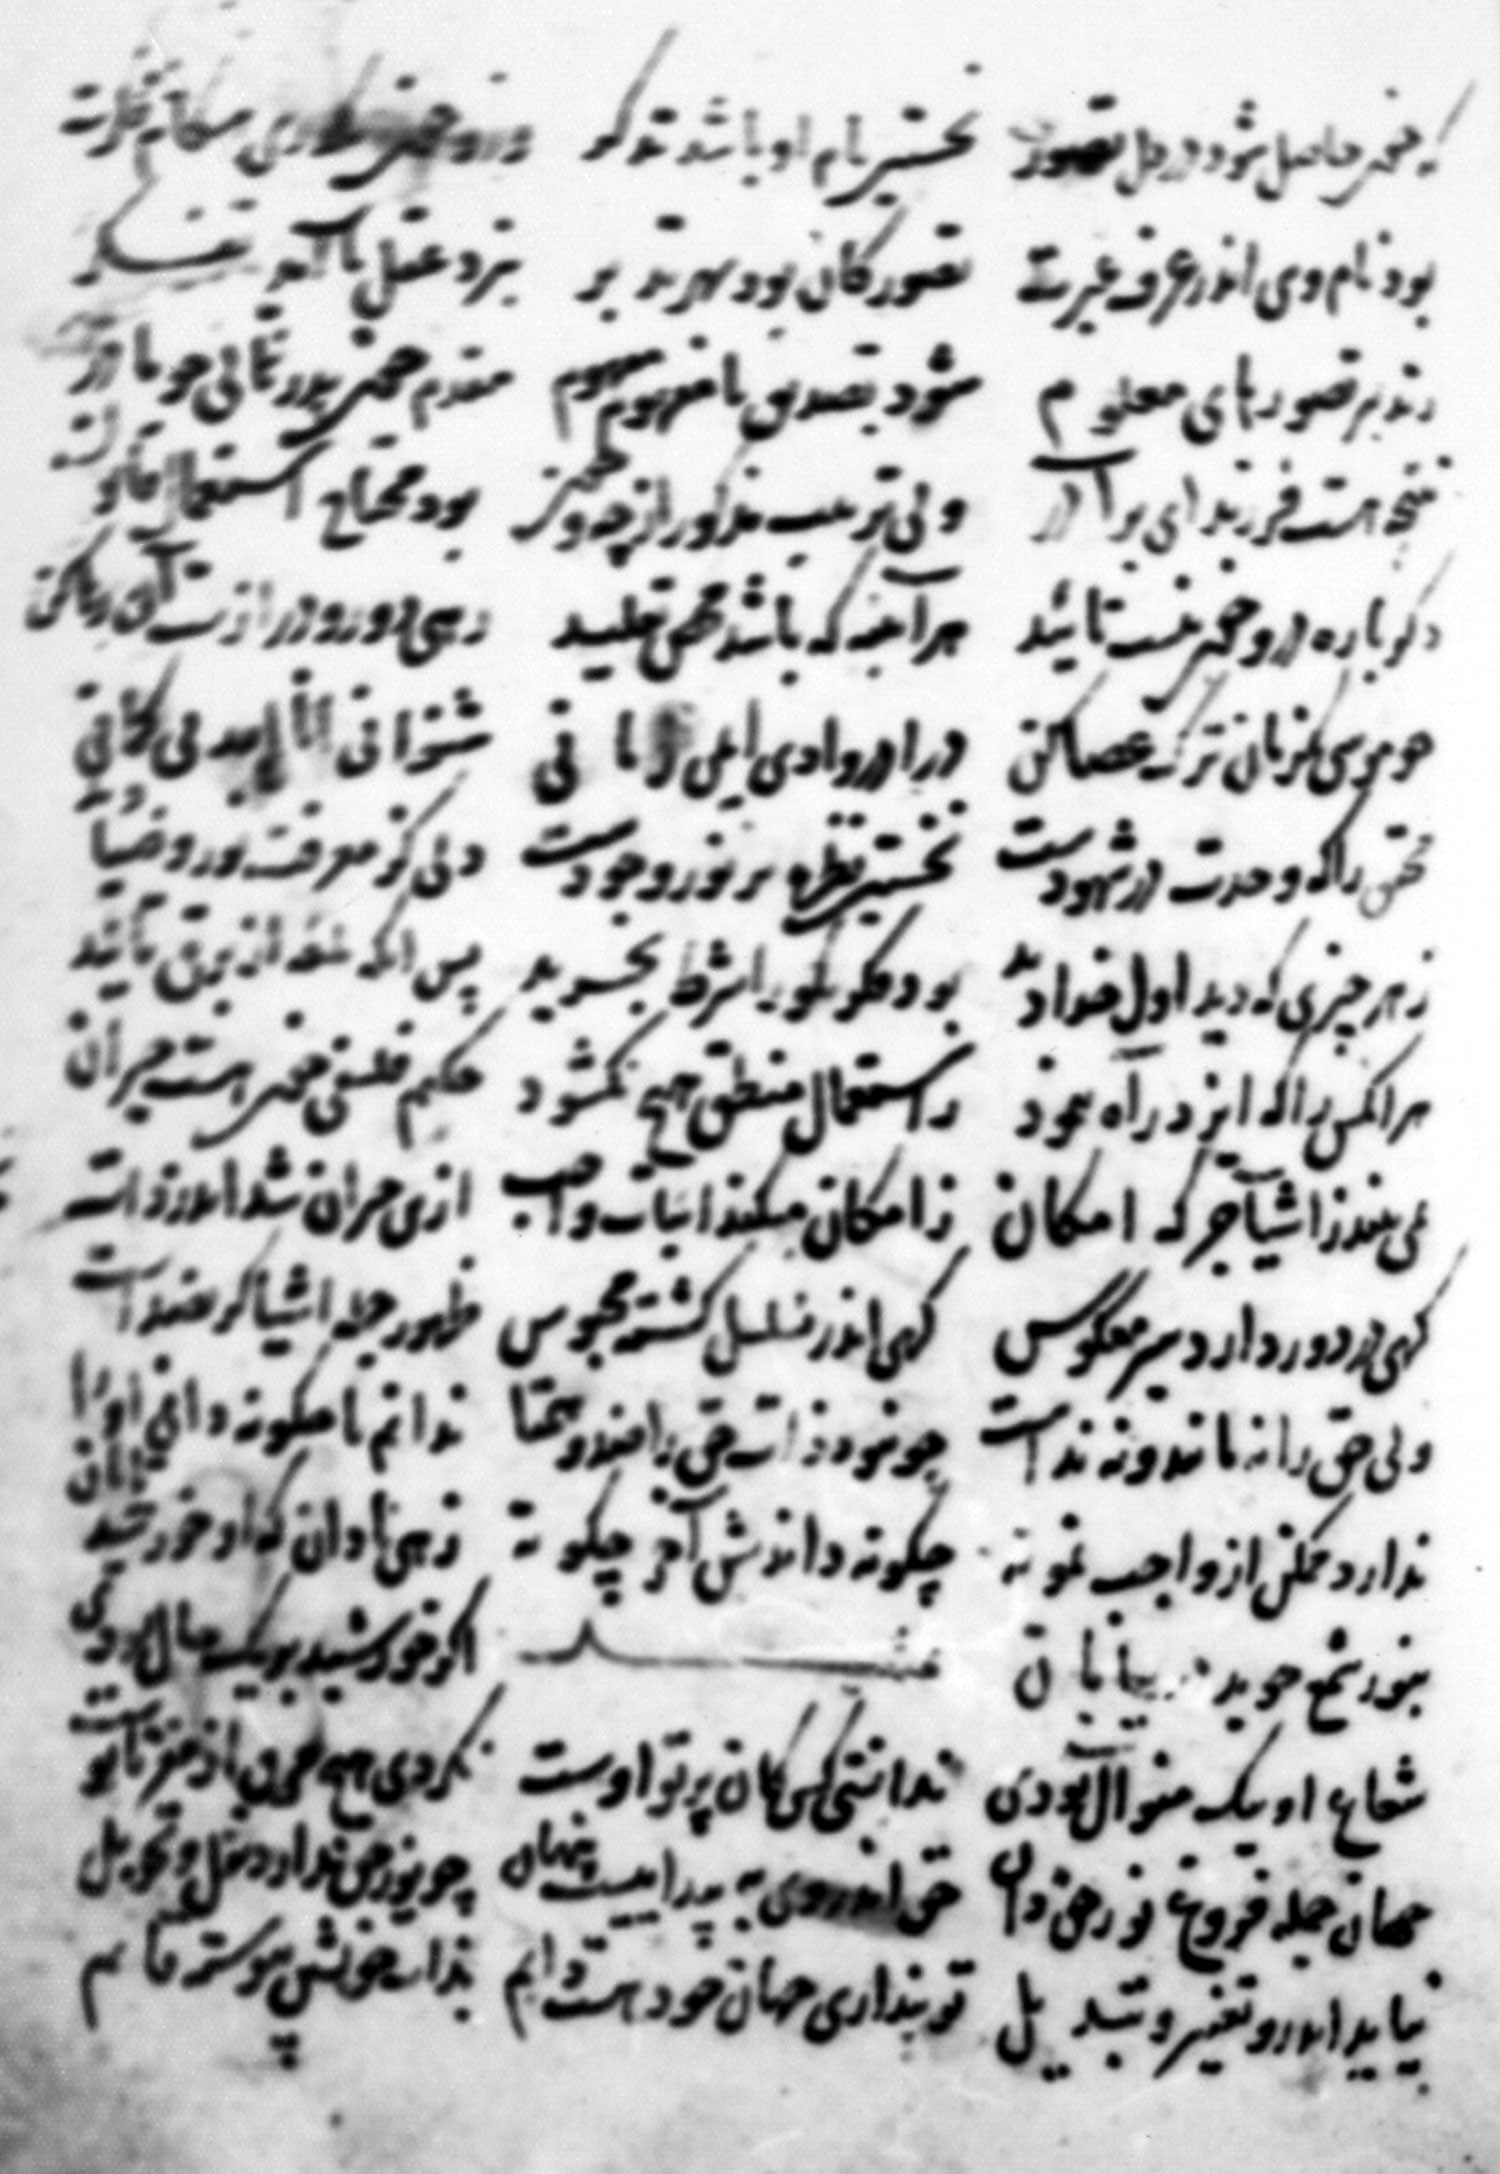 که چون حاصل شود در دل تصور نخستین نام او باشد تذکر وزو چون بگذری هنگام فکرت
بود نام وی اندر عرف عبرت تصور کان بود بهر تدبر بنزد عقل باشد تفکر
ز تدبر تصورهای معلوم شود تصدیق نامفهوم مفهوم مقدم چون پدر تالی چو مادر
نتیجه هست فرزند ای برادر ولی ترتیب مذکور از چه و چون بود محتاج استعمال قانون
دگرباره در و چون نیست تایید هر آینه که باشد محض تقلید رهی دور و دراز است آن رها کن
چو موسی یکزمان ترک عصا کن درا در وادی ایمن زمانی شنو انی انا الله بی گمانی
محقق را که وحدت در شهودست نخستین نظره بر نور وجودست دلی کز معرفت نور و صفا دید
ز هر چیزی که دید اول خدا دید بود فکر نکو را شرط تجرید پس آنگه لمعه از برق تایید
هر آنکس را که ایزد راه ننمود ز استعمال منطق هیچ نگشود حکیم فلسفی چون هست حیران
نمی بیند ز اشیا جز که امکان ز امکان میکند اثبات واجب ازین حیران شد اندر ذات واجب
گهی در دور دارد سیر معکوس گهی اندر تسلسل گشته محبوس ظهور جمله اشیا کز ضد است
ولی حق را نه مانند و نه ند است چو نبود ذات حق را ضد و همتا ندانم تا چگونه دانی او را
ندارد ممکن از واجب نمونه چگونه دانیش آخر چگونه زهی نادان که او خورشید تابان
بنور شمع جوید در بیابان تمثیل اگر خورشید بر یک حال بودی
شعاع او بیک منوال بودی ندانستی کسی کان پرتو اوست نکردی هیچ فرق از مغز تا پوست
جهان جمله فروغ نور حق دان حق اندر وی ز پیداییست پنهان چو نور حق ندارد نقل و تحویل
نیاید اندرو تغییر و تبدیل تو پنداری جهان خود هست دایم بذات خویش پیوسته قایم